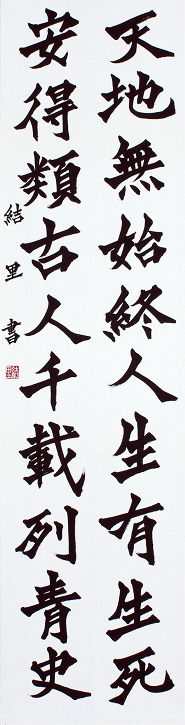 天地無始終人生有生死
安得類古人千載列青史
結里書